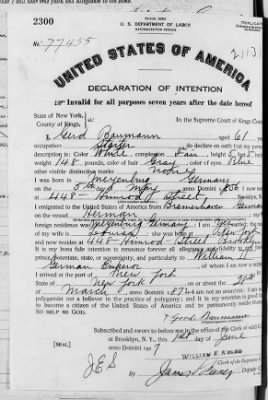 2300
U. S. DEPARTMENT OF LABOR
No. 77455
2113
UNITED STATES OF AMERICA
DECLARATION OF INTENTION
Invalid for all purposes seven years after the date hereof
State of New York,
County of Kings, ss:
In the Supreme Court of Kings County
I, Gerd Baumann aged 61
occupation do declare on oath that my personal
description is: Color White, complexion Fair, height 5 feet
weight 148 pounds, color of hair Gray, color of eyes Blue
other visible distinctive marks None
I was born in Germany
on the day of May, anno Domini 1856; I now reside
at 448 Street
I emigrated to the United States of America from Bremerhaven Germany
on the vessel Herman
foreign residence was Germany; I am
of my wife is Louisa; she was born in New York
and now resides at 448 Street Brooklyn
It is my bona fide intention to renounce forever all allegiance and fidelity to any foreign
prince, potentate, state, or sovereignty, and particularly to William II
German Emperor, of whom I am now a subject
I arrived at the port of New York
State of New York, on or about the day
of March, anno Domini 1874; I am not an anarchist; I am not a
polygamist nor a believer in the practice of polygamy; and it is my intention in good faith
to become a citizen of the United States of America and to permanently reside therein:
SO HELP ME GOD.
Gerd Baumann
Subscribed and sworn to before me in the office of the Clerk of said Court
at Brooklyn, N.Y., this 1st day of June
anno Domini 1917
[SEAL]
Clerk of the Supreme Court